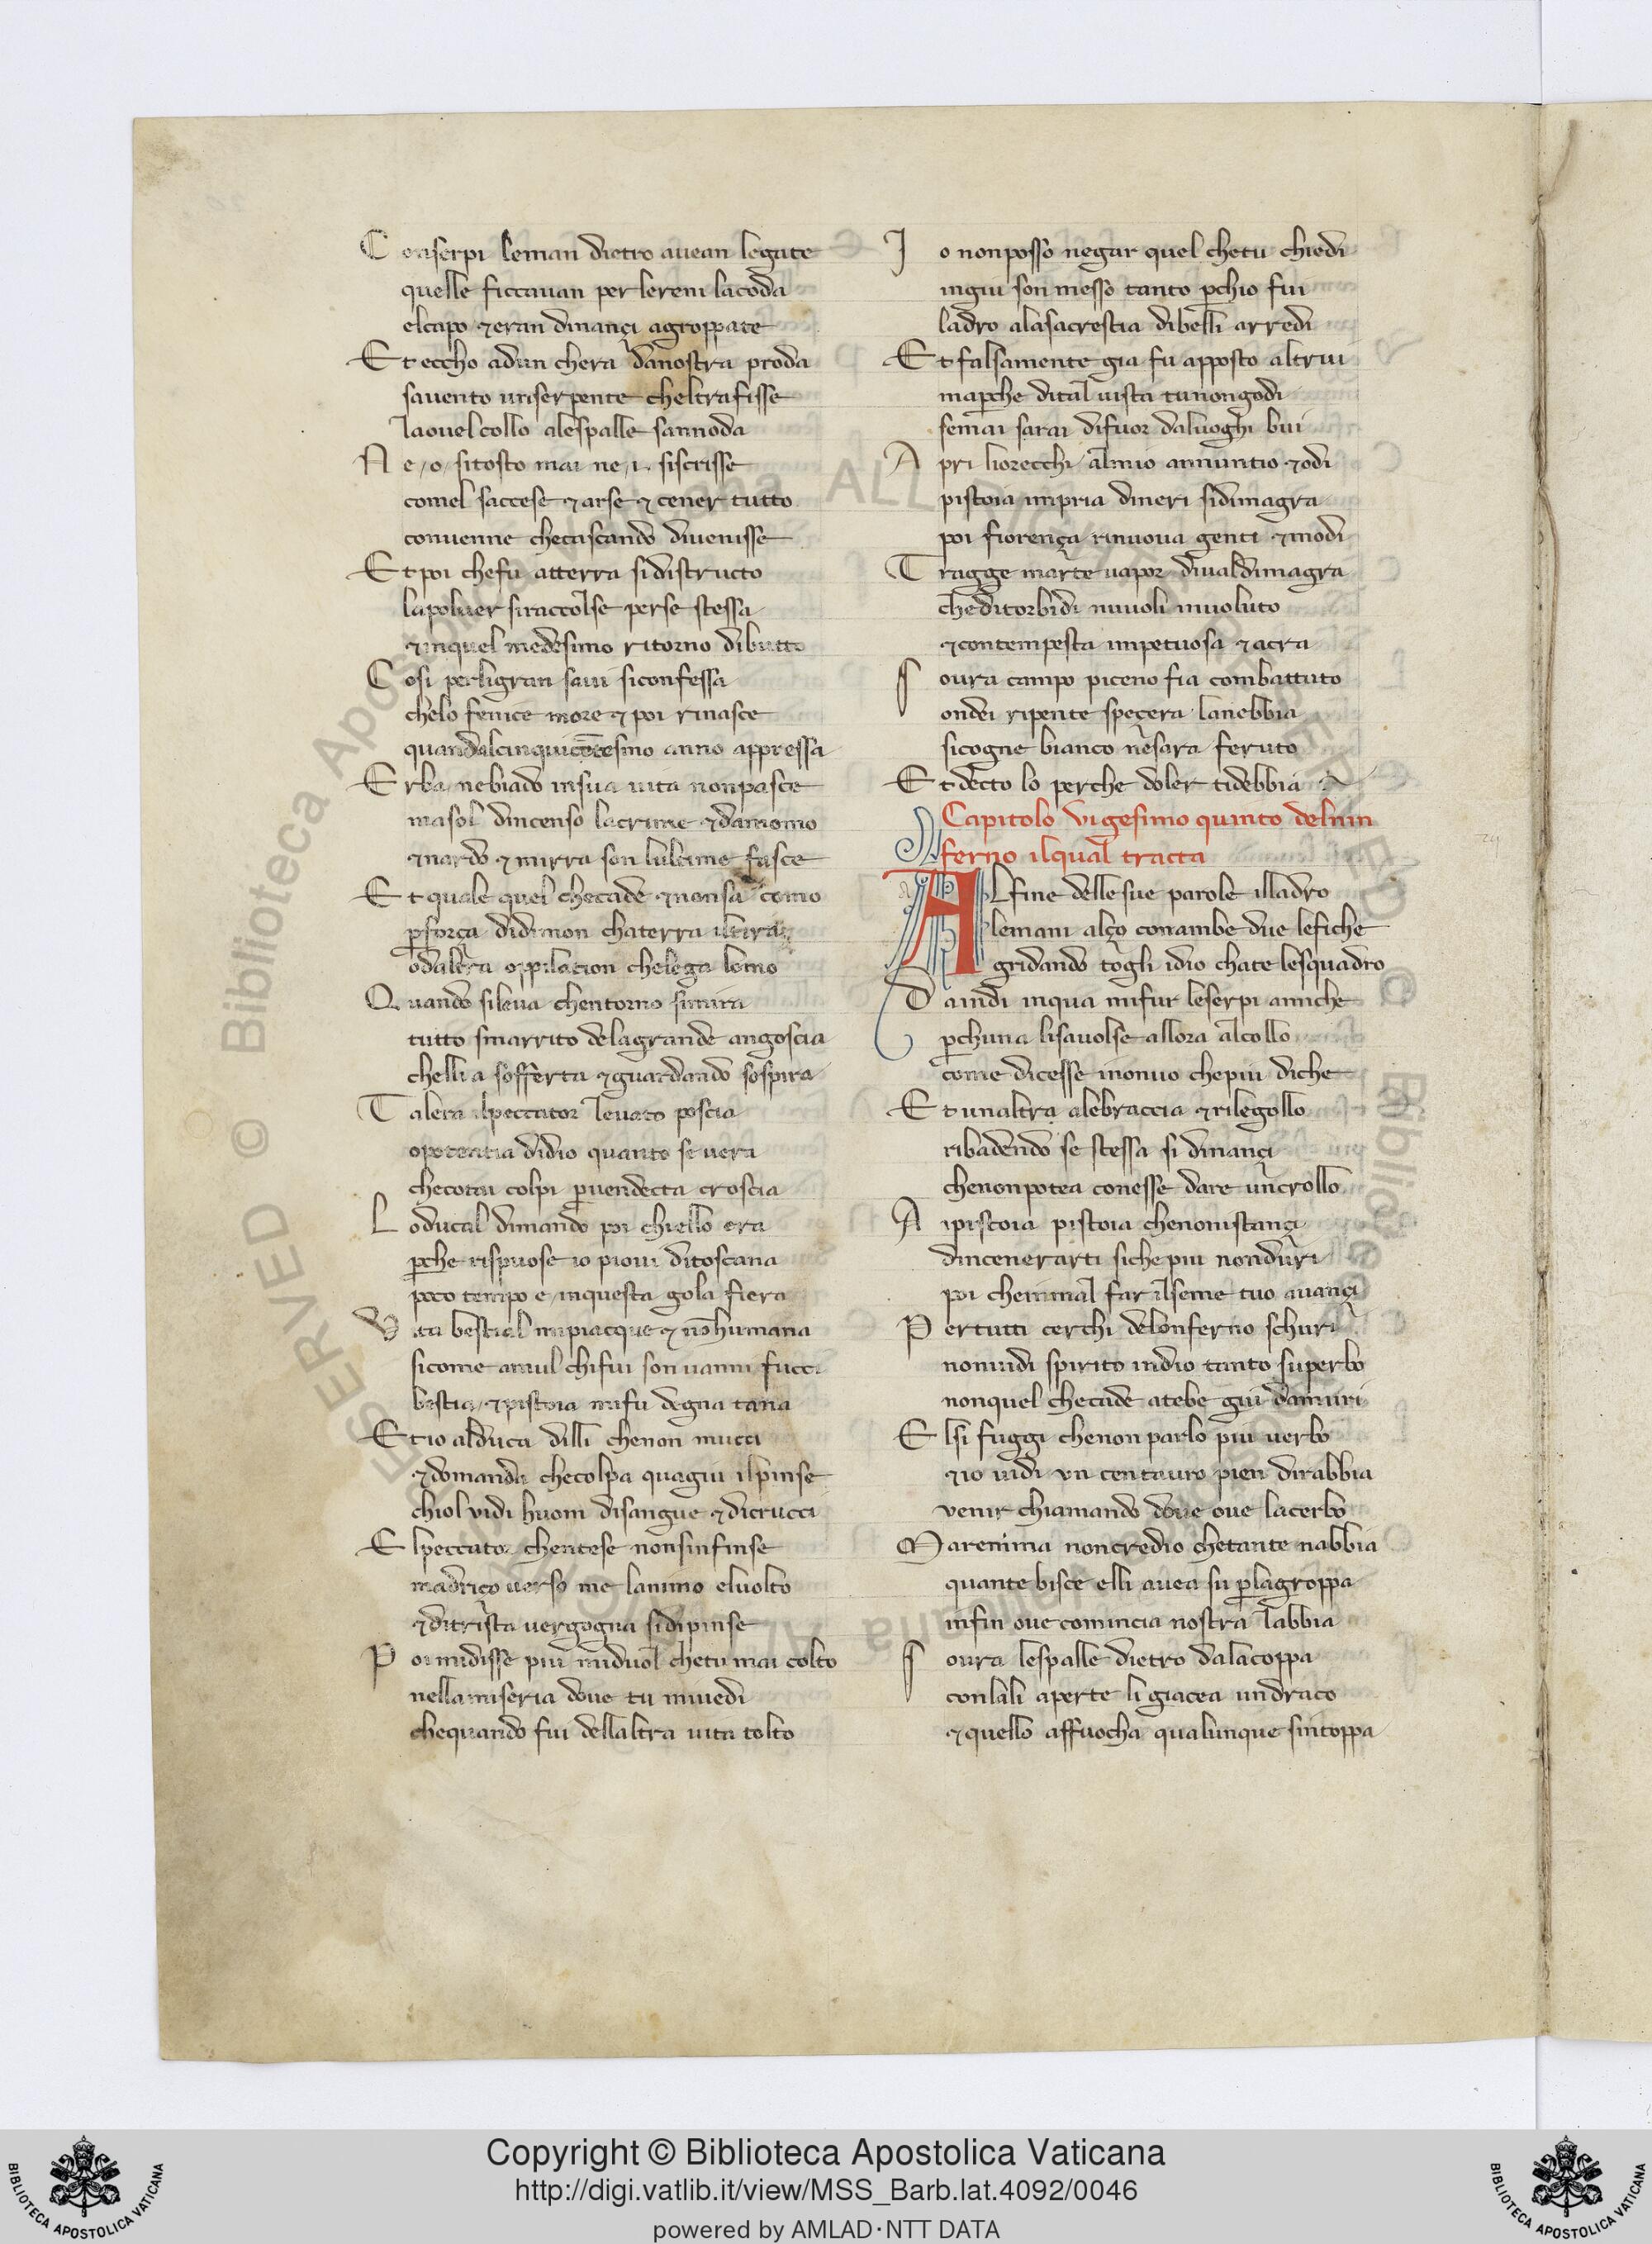 Conserpi leman dietro avean legate
quelle ficcavan perlereni lacoda
elcapo ⁊eran dinançi agroppate
Et eccho adun chera danostra proda
savento unserpente cheltrafisse
laovel collo alespalle sannoda
Ne /o/ sitosto mai ne /i/ siscrisse
comel saccese ⁊ arse ⁊ cener tutto
convenne checascando divenisse
Et poi chefu atterra si distructo
lapolver siraccolse perse stessa
⁊inquel medesimo ritorno dibutto
Cosi perligran savi siconfessa
chelo fenice more ⁊ poi rinasce
quandalcinquicentesimo anno appressa
Erba nebiado insua vita nonpasce
masol dincenso lacrime ⁊damomo
⁊nardo ⁊ mirra son lultime fasce
Et quale quel checade ⁊nonsa como
ꝑ força didemon chaterra iltira
odaltra oppilation chelega lomo
Quando sileva chentorno simira
tutto smarrito delagrande angoscia
chelli a sofferta ⁊guardando sospira
Talera ilpeccator levato poscia
opotentia didio quanto severa
checotai colpi ꝑvendecta croscia
Loducal dimando poi chiello era
ꝑche rispuose io piovi ditoscana
poco tempo e inquesta gola fiera
Vita bestial mipiacque ⁊ nō humana
sicome amul chifui son vanni fucci
bestia ⁊pistoia mifu degna tana
Et io alduca dilli chenon mucci
⁊domanda checolpa quagiu ilpinse
chiol vidi huom disangue ⁊ dicrucci
Elpeccator chentese nonsinfinse
madriço verso me lanimo elvolto
⁊ditrista vergogna sidipinse
Poi midisse piu miduol chetu mai colto
nellamiseria dove tu mivedi
chequando fui dellaltra vita tolto
Io nonposso negar quel chetu chiedi
ingiu son messo tanto ꝑchio fui
ladro alasacrestia dibelli arredi
Et falsamente gia fu apposto altrui
maꝑche dital vista tunongodi
semai sarai difuor daluoghi bui
Apri liorecchi almio annuntio ⁊odi
pistoia impria dineri sidimagra
poi fiorença rinuova genti ⁊modi
Tragge marte vapor divaldimagra
cheditorbidi nuvoli involuto
⁊contempesta impetuosa ⁊acra
Soura campo piceno fia combattuto
ondei ripente speçera lanebbia
sicogne bianco nesara feruto
Et decto lo perche doler tidebbia
Capitolo vigesimo quinto delnin
ferno ilqual tracta
ALfine dellesue parole illadro
lemani alço conambe due lefiche
gridando togli idio chate lesquadro
Daindi inqua mifur leserpi amiche
ꝑchuna lisavolse allora alcollo
come dicesse inonvo chepiu diche
Et unaltra alebraccia ⁊rilegollo
ribadendo se stessa si dinançi
chenonpotea conesse dare uncrollo
Aipistoia pistoia chenonistançi
dincenerarti siche piu nonduri
poi chenimal far ilseme tuo avançi
Pertutti cerchi delonferno schuri
nonvidi spirito indio tanto superbo
nonquel checadde atebe giu damuri
Elsi fuggi chenon parlo piu verbo
⁊io vidi vn centauro pien dirabbia
venir chiamando dove ove lacerbo
Maremma noncredio chetante nabbia
quante bisce elli avea su ꝑlagroppa
infin ove comincia nostra labbia
Soura lespalle dietro dalacoppa
conlali aperte li giacea undraco
⁊quello affuocha qualunque sintoppa
Copyright © Biblioteca Apostolica Vaticana
http://digi.vatlib.it/view/MSS_Barb.lat.4092/0046
powered by AMLAD·NTT DATA